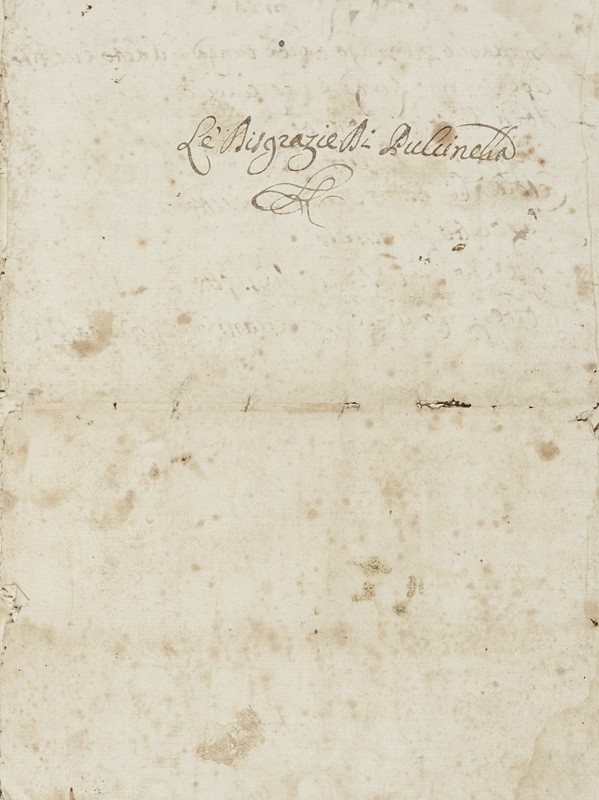 Le Disgrazie Di Pulcinella